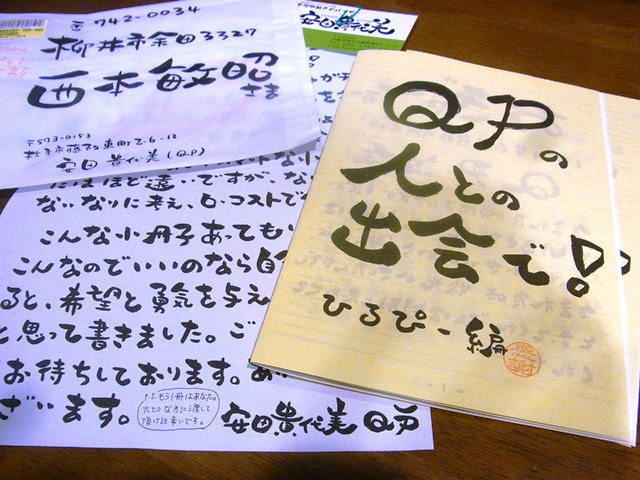 〒742-0034
柳井市余田3327
西本敏昭
さま
〒573-0153
枚方市藤阪東町2-6-12
安田貴代美(QP)
安田貴代美
QPの
人との
出会で!
ひるぴー編
にはほど遠いですが、な
ないなりに考え、ロ・コストで
こんな小冊子あっても
こんなのでいいのなら自
ると、希望と勇気を与え
と思って書きました。ご
お待ちしております。あ
ざいます。
P.S.もう1冊はあなたの
大せつな方に渡して
頂けると幸いです。
安田貴代美 QP